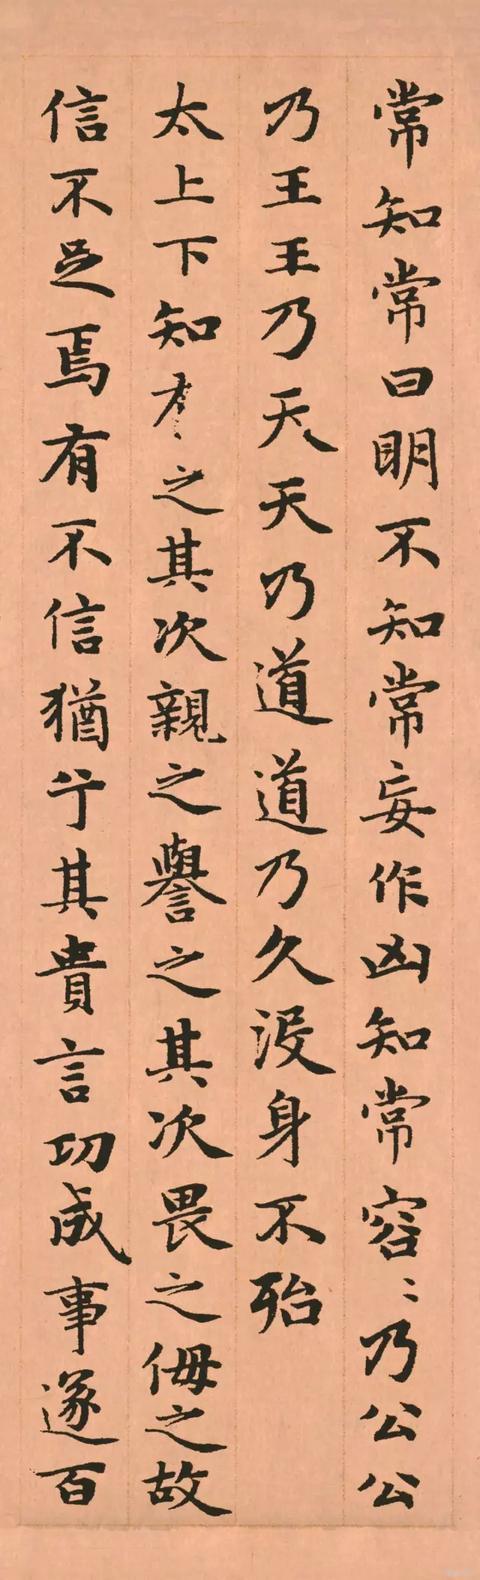 常知常曰明不知常妄作凶知常容〻乃公公
乃王王乃天天乃道道乃久没身不殆
太上下知有之其次親之譽之其次畏之侮之故
信不足焉有不信猶兮其貴言功成事遂百